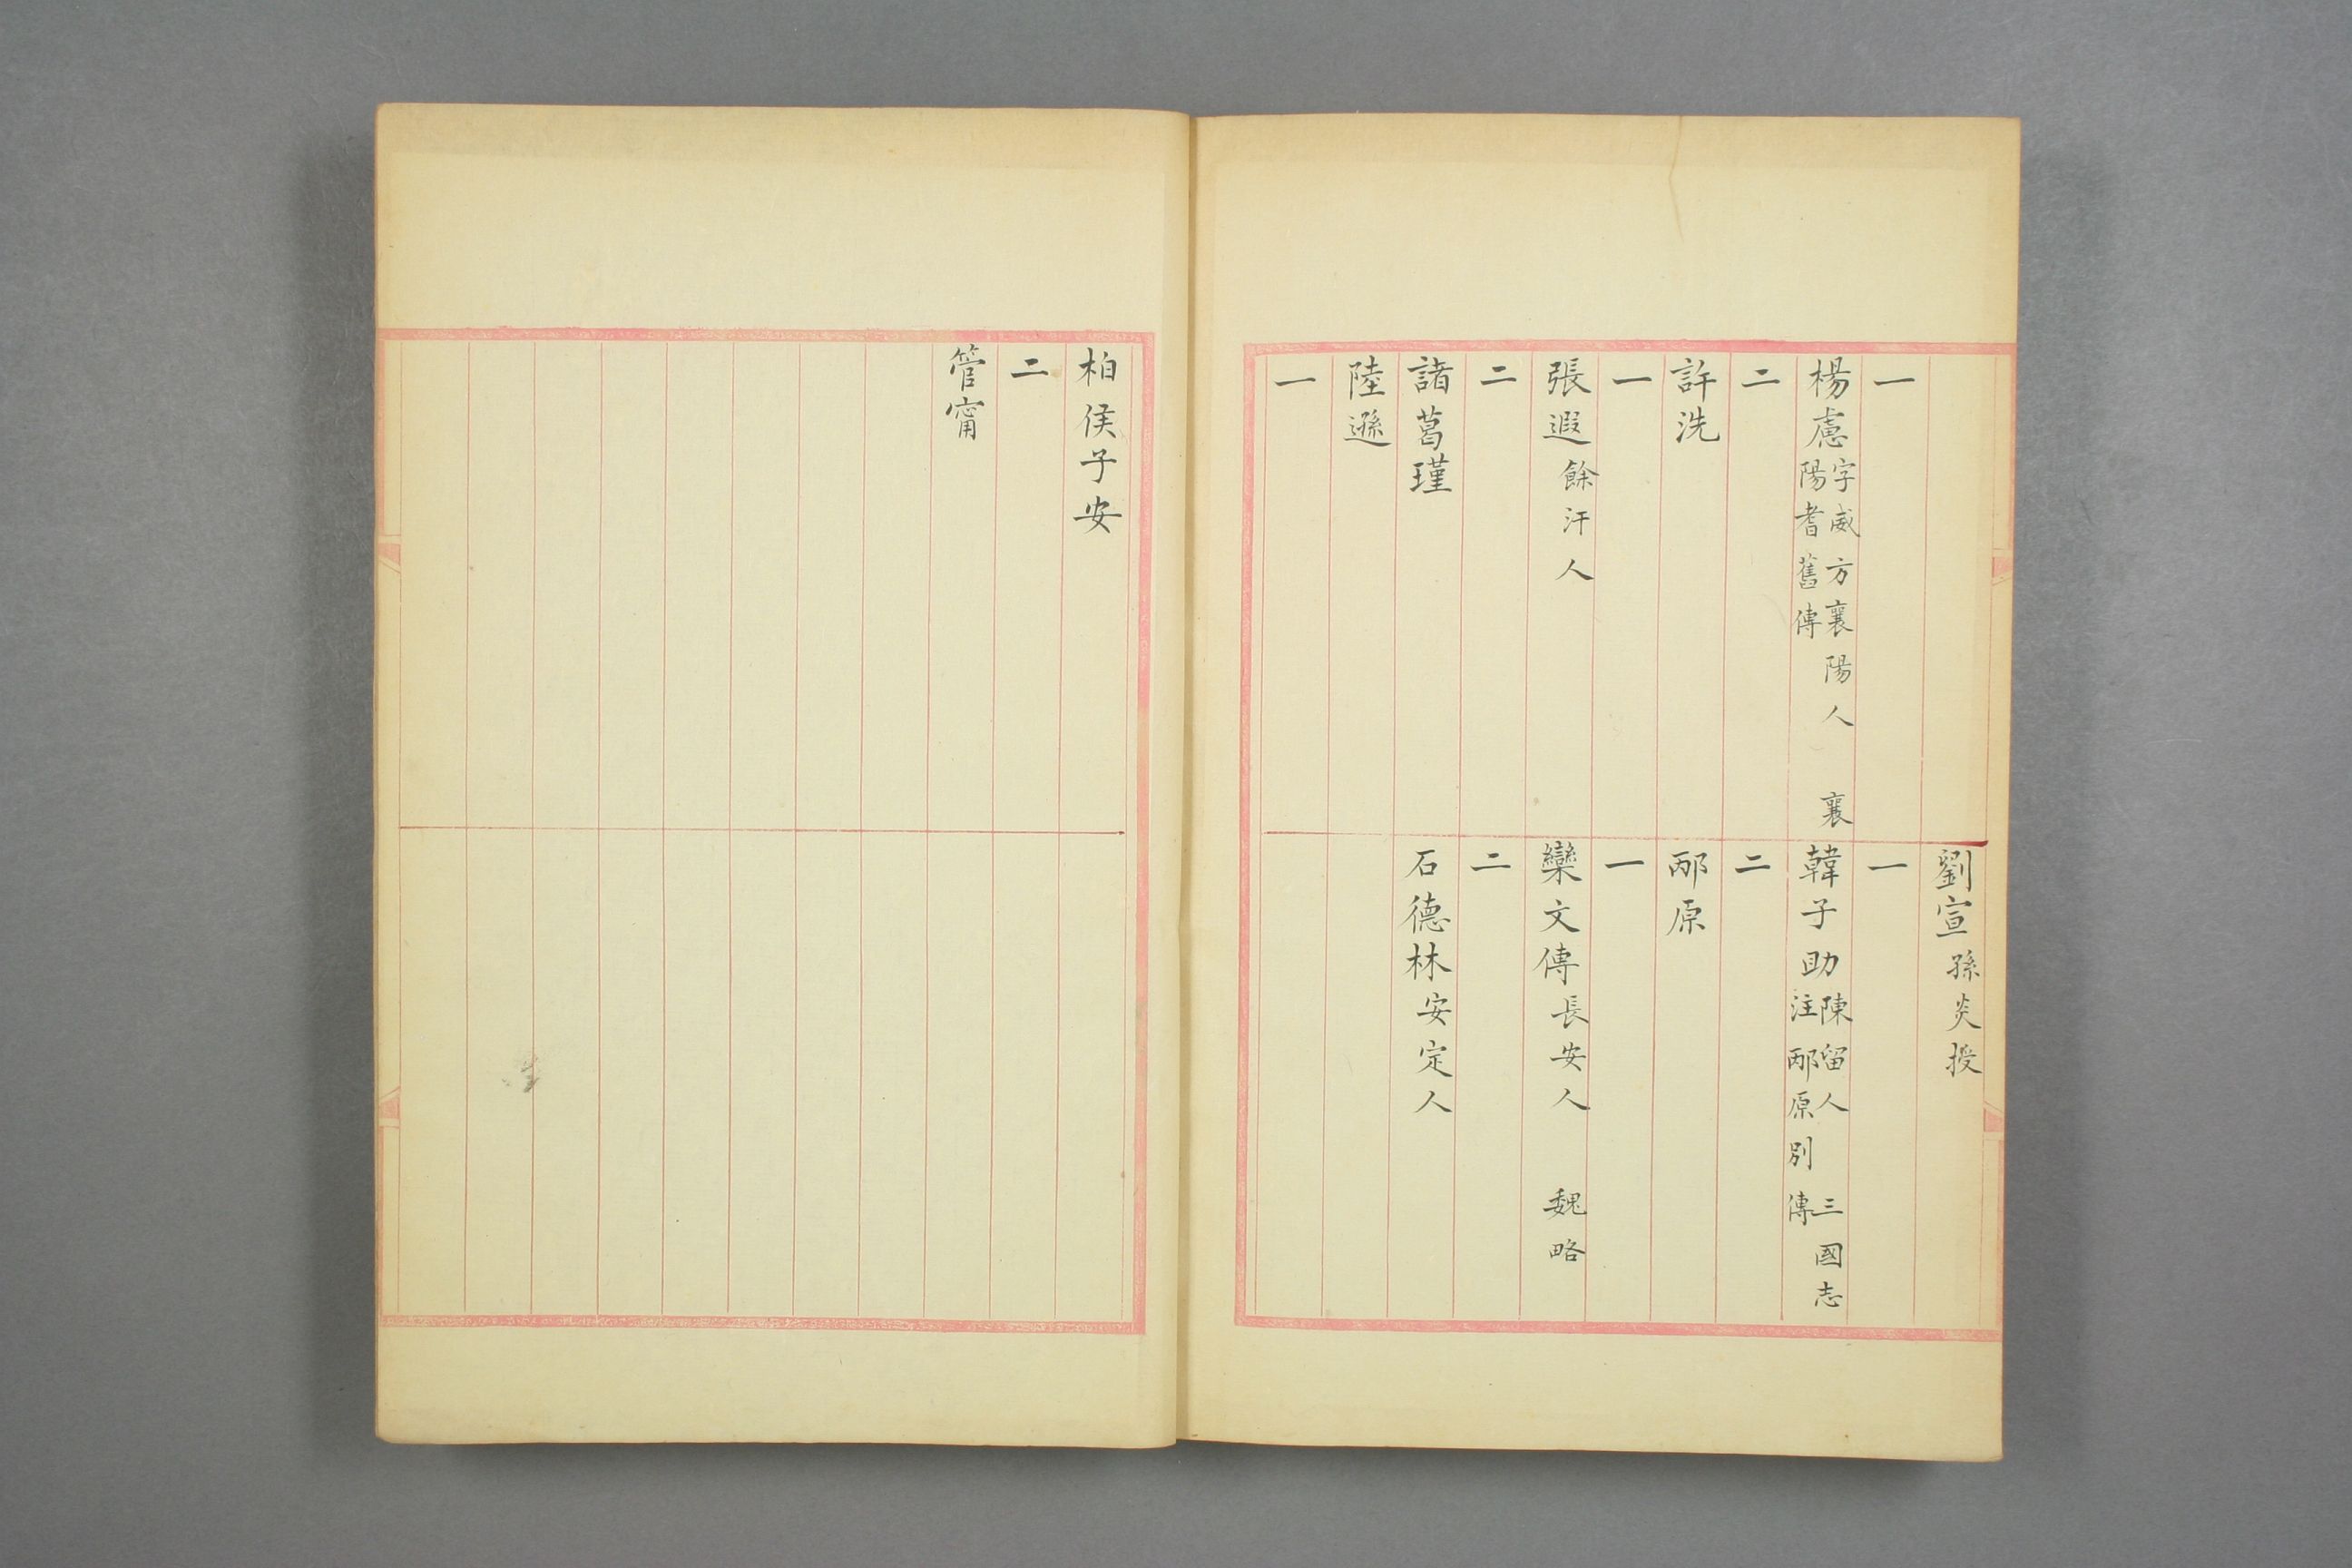 一
楊慮字威方襄陽人 襄
陽耆舊傳
二
許洗
一
張遐餘汗人
二
諸葛瑾
陸遜
一
劉宣孫炎授
一
韓子助陳留人 三國志
注邴原別傳
二
邴原
一
欒文傳長安人 魏略
二
石德林安定人
柏侯子安
二
管甯